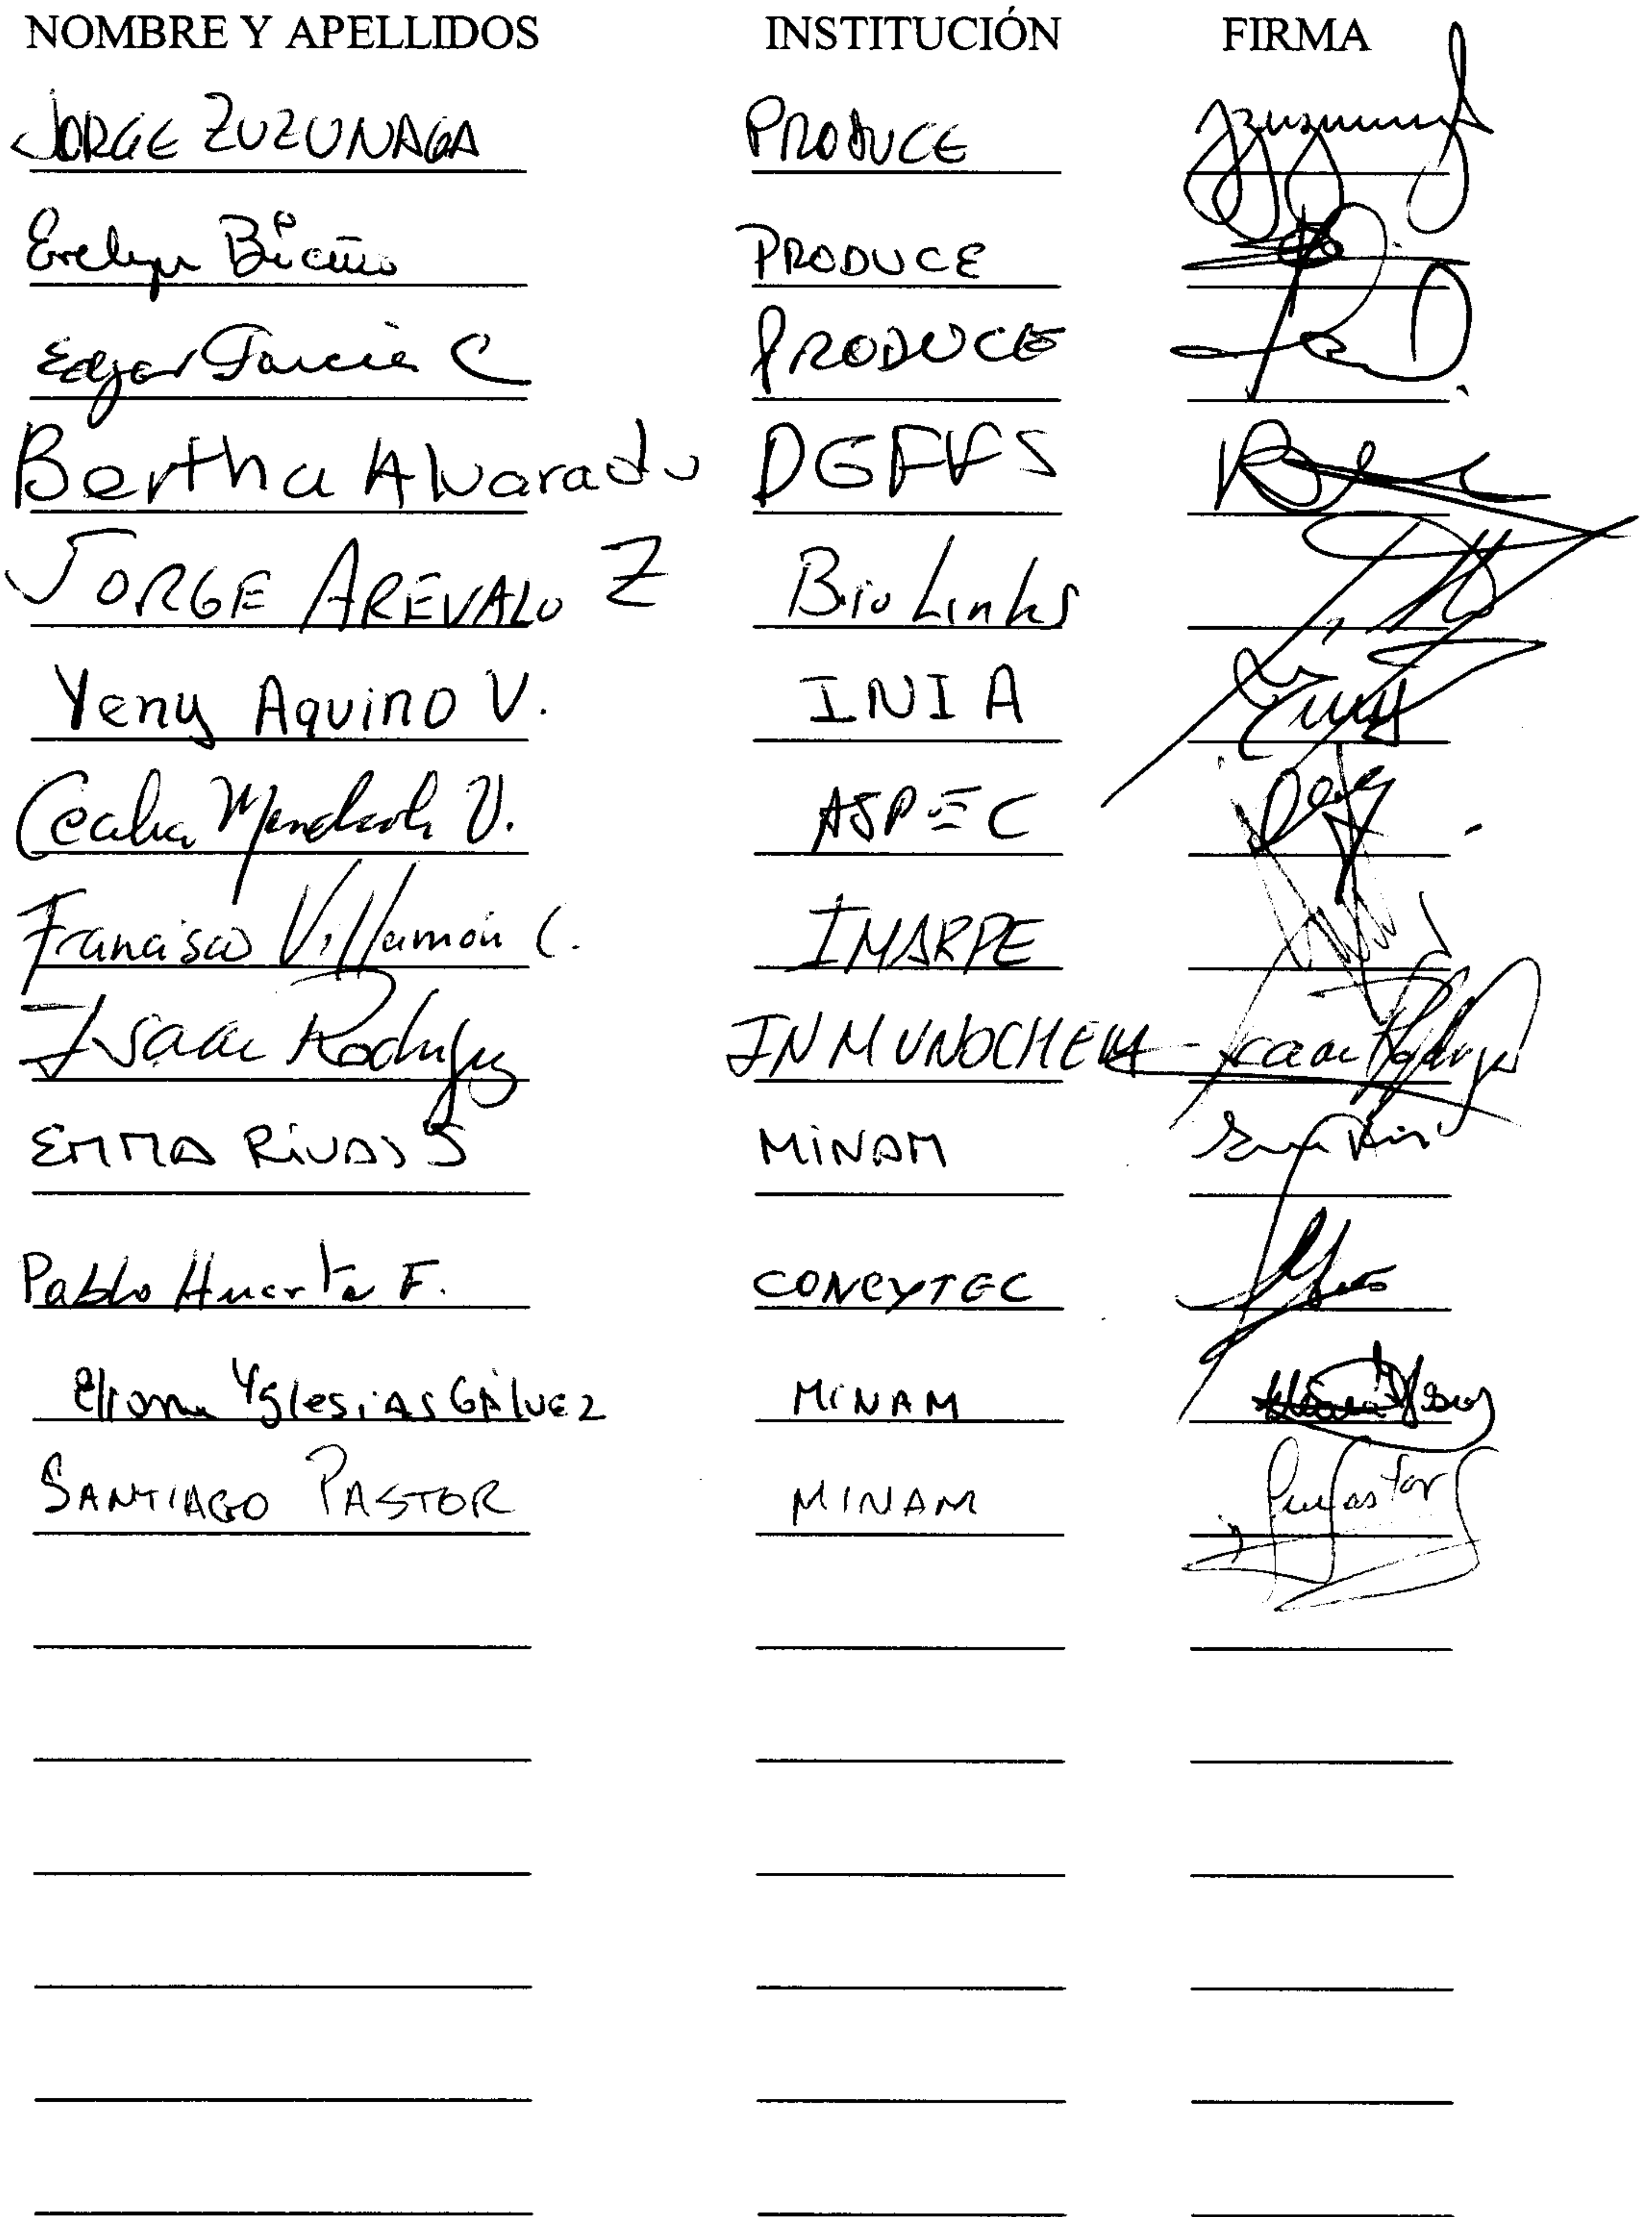 NOMBRE Y APELLIDOS INSTITUCIÓN FIRMA
JORGE ZUZUNAGA PRODUCE
Evelyn PRODUCE
Edgar Garcia C PRODUCE
Bertha Alvarado DGFFS
JORGE AREVALO Z BioLinks
Yeny Aquino V. INIA
Cecilia Mendiola V. ASPEC
Francisco Villamón C. IMARPE
Isaac Rodríguez INMUNOCHEM
EMMA RIVAS S MINAM
Pablo Huerta F. CONCYTEC
Eliana Yglesias Gálvez MINAM
SANTIAGO PASTOR MINAM